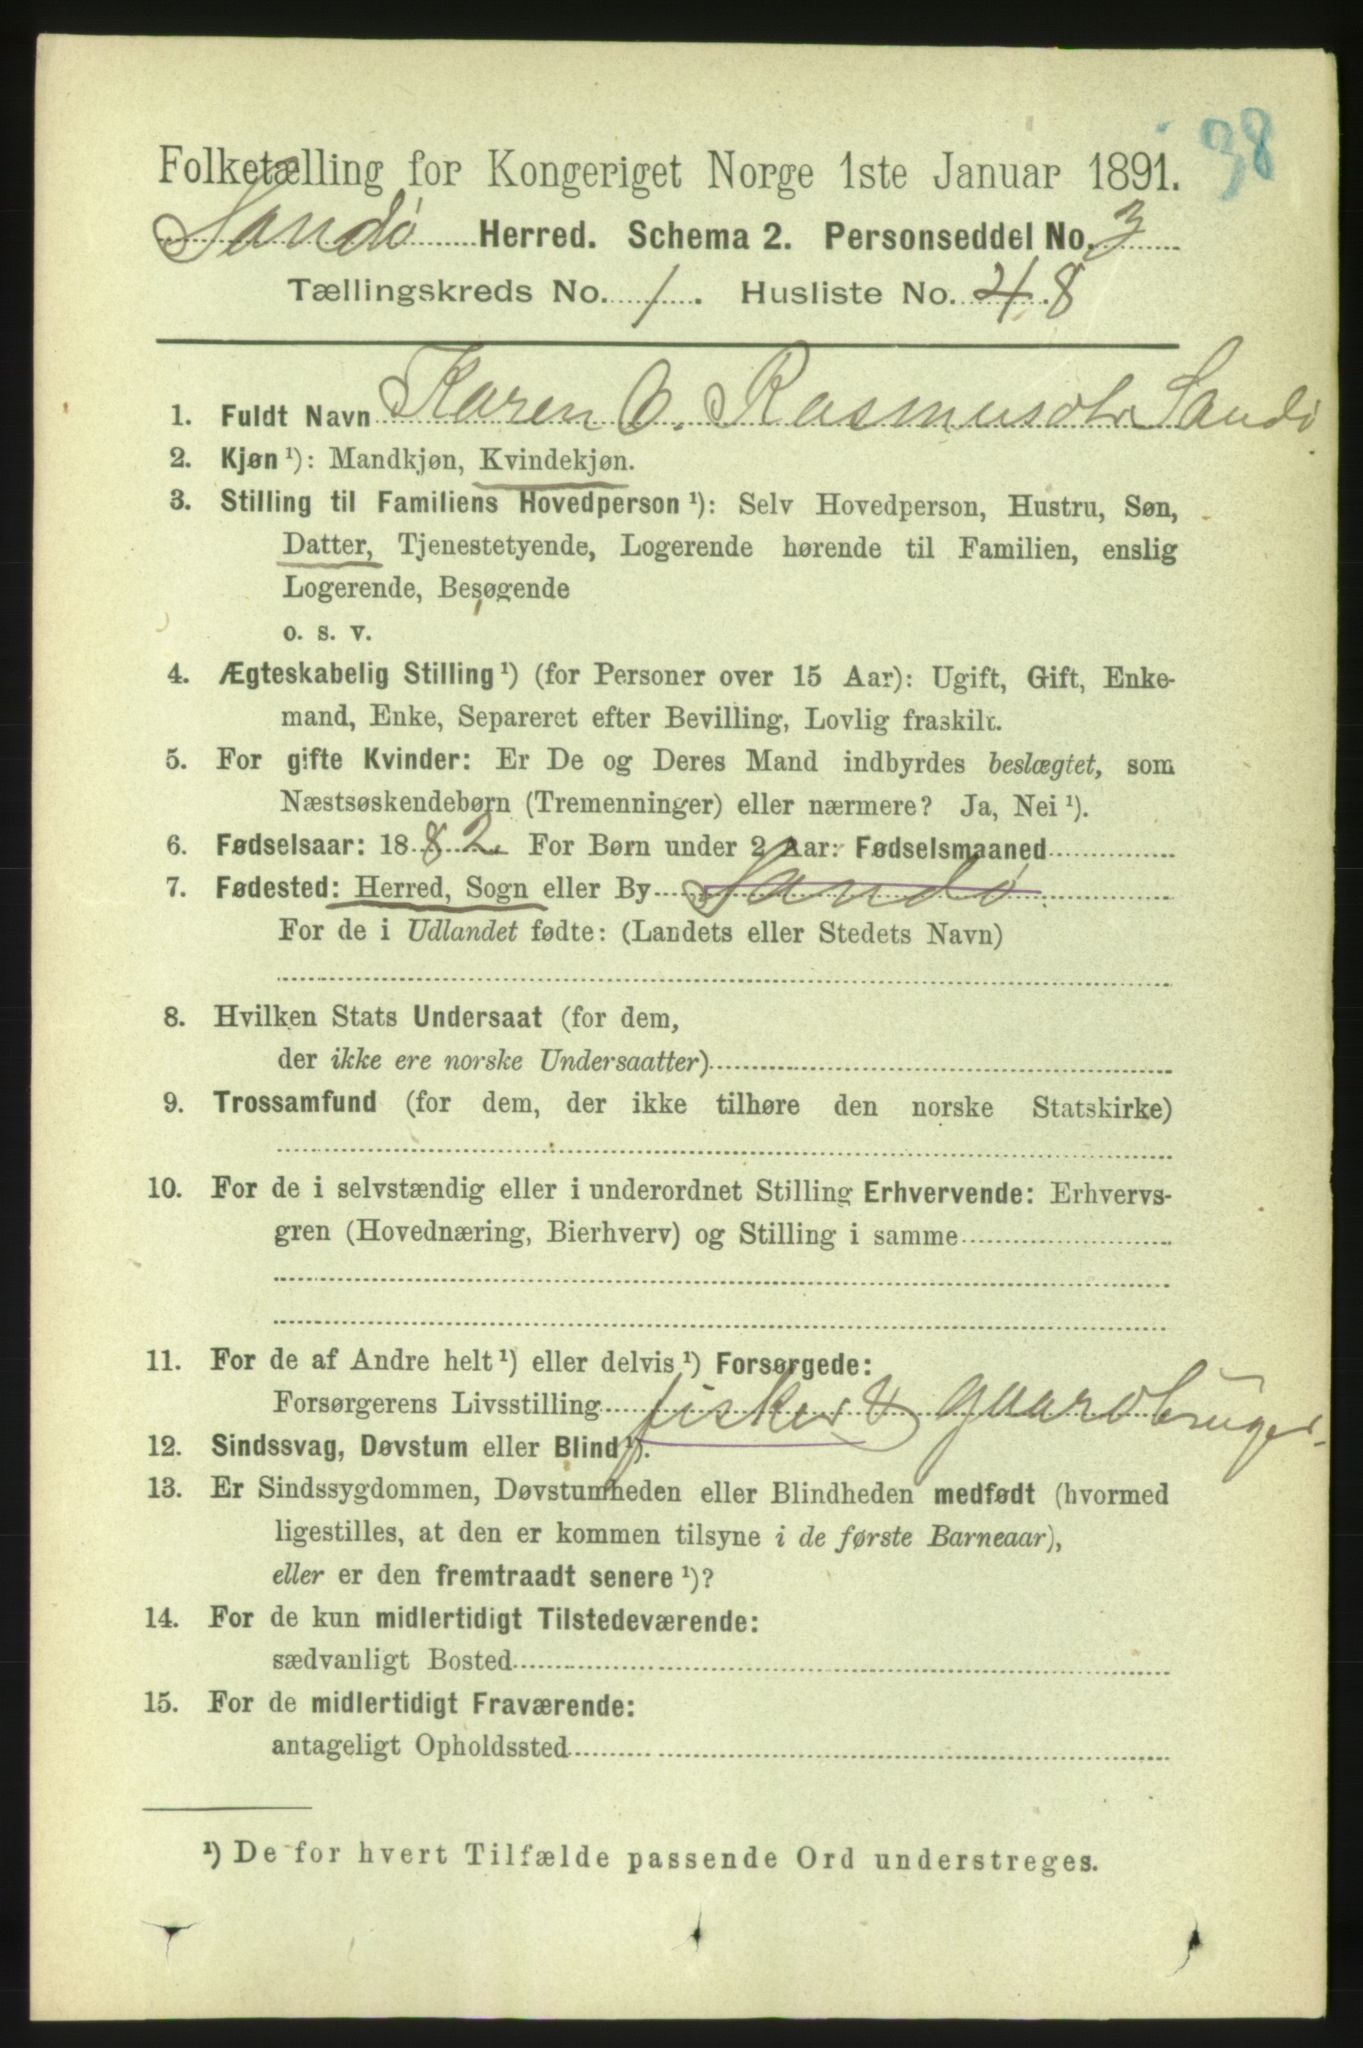 38
Folketælling for Kongeriget Norge 1ste Januar 1891.
Sandø Herred. Schema 2. Personseddel No. 3
Tællingskreds No. 1. Husliste No. 4.8
1. Fuldt Navn Karen O. Rasmusdtr Sandø
2. Kjøn ¹): Mandkjøn, Kvindekjøn.
3. Stilling til Familiens Hovedperson ¹): Selv Hovedperson, Hustru, Søn,
Datter, Tjenestetyende, Logerende hørende til Familien, enslig
Logerende, Besøgende
o. s. v.
4. Ægteskabelig Stilling ¹) (for Personer over 15 Aar): Ugift, Gift, Enke-
mand, Enke, Separeret efter Bevilling, Lovlig fraskilt.
5. For gifte Kvinder: Er De og Deres Mand indbyrdes beslægtet, som
Næstsøskendebørn (Tremenninger) eller nærmere? Ja, Nei ¹).
6. Fødselsaar: 1882. For Børn under 2 Aar: Fødselsmaaned
7. Fødested: Herred, Sogn eller By Sandø
For de i Udlandet fødte: (Landets eller Stedets Navn)
8. Hvilken Stats Undersaat (for dem,
der ikke ere norske Undersaatter)
9. Trossamfund (for dem, der ikke tilhøre den norske Statskirke)
10. For de i selvstændig eller i underordnet Stilling Erhvervende: Erhvervs-
gren (Hovednæring, Bierhverv) og Stilling i samme
11. For de af Andre helt ¹) eller delvis ¹) Forsørgede:
Forsørgerens Livsstilling fisker & gaardbruger.
12. Sindssvag, Døvstum eller Blind ¹).
13. Er Sindssygdommen, Døvstumheden eller Blindheden medfødt (hvormed
ligestilles, at den er kommen tilsyne i de første Barneaar),
eller er den fremtraadt senere ¹)?
14. For de kun midlertidigt Tilstedeværende:
sædvanligt Bosted
15. For de midlertidigt Fraværende:
antageligt Opholdssted
¹) De for hvert Tilfælde passende Ord understreges.